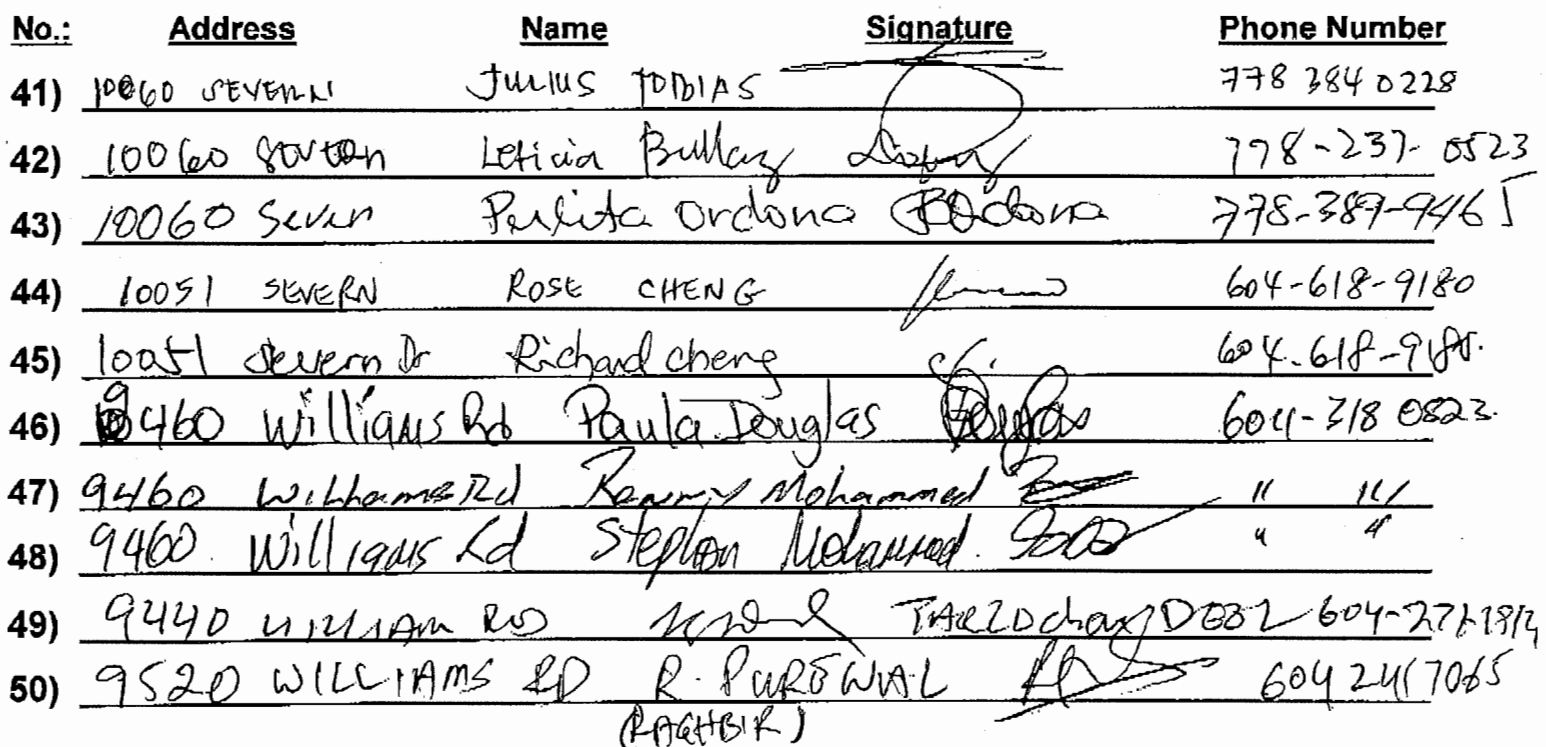 No.: Address Name Signature Phone Number
41) 10060 SEVERN JULIUS TOBIAS 778 384 0228
42) 10060 Leticia 778-237-0523
43) 10060 Seven Perlita Ordona 778-389-9465
44) 10051 SEVERN ROSE CHENG 604-618-9180
45) 10051 Severn Dr Richard Cheng 604-618-9180.
46) 9460 Williams Rd Paula Douglas 604-318 0823.
47) 9460 Williams Rd Mohammed " "
48) 9460 Williams Rd Stephon Mohammed " "
49) 9440 WILLIAM RD
50) 9520 WILLIAMS RD R. PUREWAL 604 241 7065
(RAGHBIR)